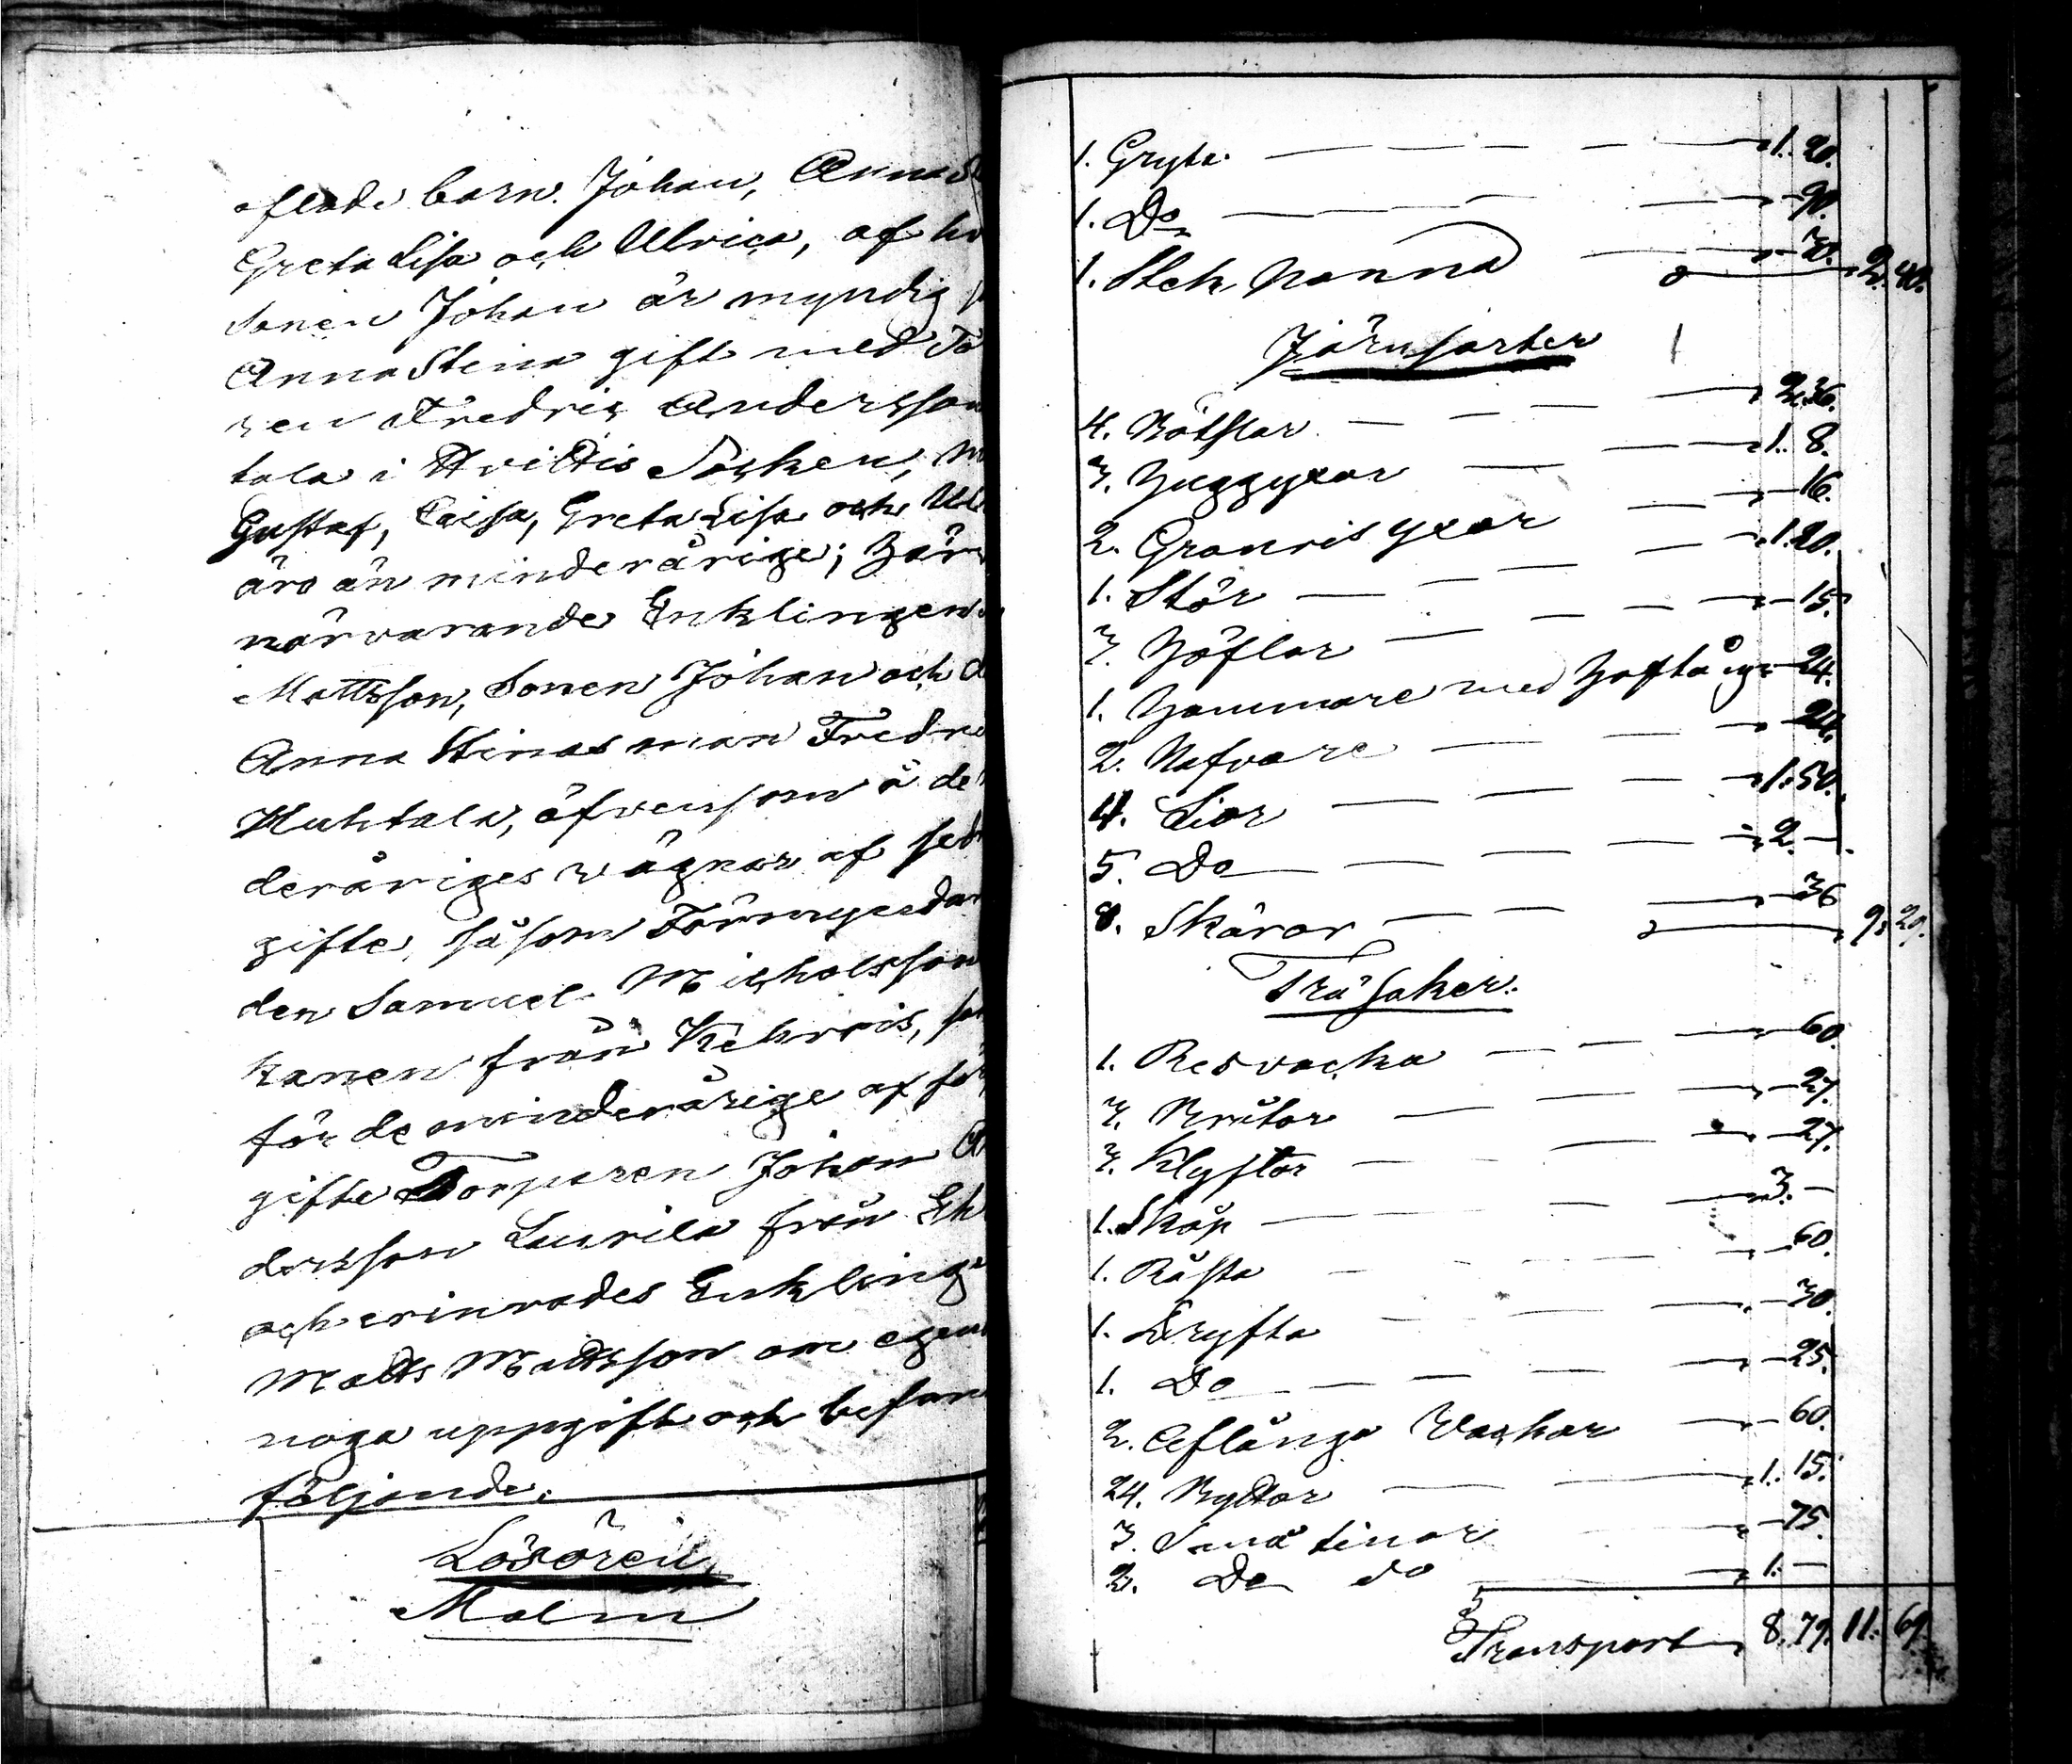 aflade barn. Johan, Anna S
Greta Lisa och Ulrica, af hv
Sonen Johan är myndig
Anna Stina gift med To
ren Fredric Andersson
tala i Hvittis Socken,
Gustaf, Caisa, Greta Lisa och Ul
äro än minderårige; Här
närvarande Enklingen
Mattsson, Sonen Johan och d
Anna Stinas man Fredr
Huhtala, äfvensom å de
deråriges vägnar af sed
gifte, såsom Förmyndar
den Samuel Michelsson
kanen från Kebrois, so
för de minderårige af för
gifte Torparen Johan A
dersson Laurila från
och erinrades Enkling
Matts Mattsson om egen
noga uppgift och befan
följande:
Lösören
Malm
1. Gryta 1. 20.
1. Do 90.
1. Stek panna 30. 2. 40.
Järnsaker
4. Bötskar 2.36.
3. Huggyxor 1. 8.
2. Granris yxor 16.
1. Stör 1.20.
3. Höflar 15.
1. Hammare med Hoftång 24.
2. Nafvare 24.
4. Lior 1.50.
5. Do 2. —
8. Skäror 36 9. 29.
Träsaker.
1. Resvacka 60.
3. Bruttor 27.
3. Klyftor 27.
1. Skåp 3. —
1. Båsta 60.
1. Dryfta 30.
1. Do 25.
2. Aflånga Vackor 60.
24. Byttor 1. 15.
3. Små tinor 75.
2. Do do 1. —
Transport 8. 79. 11. 69.